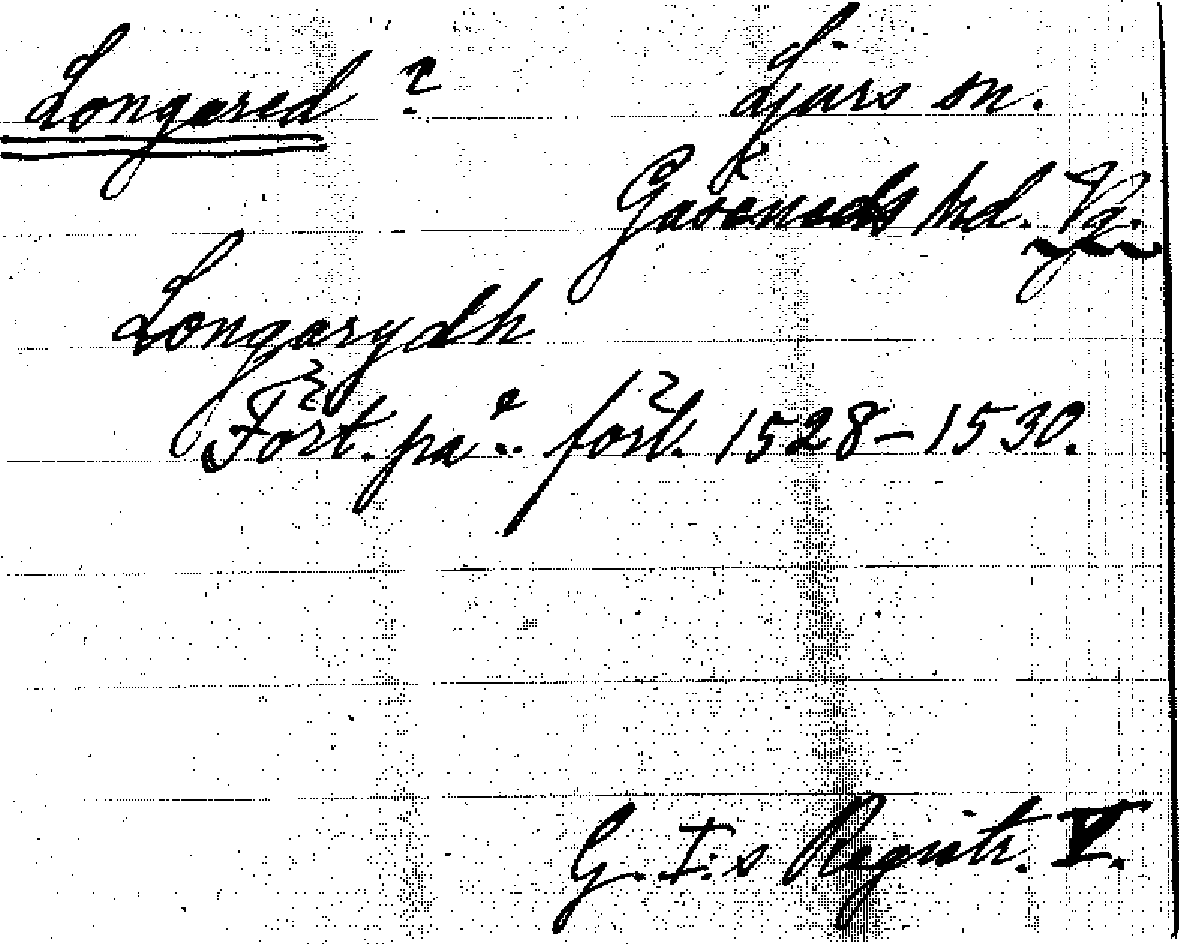 Longared ? Ljurs sn.
Gäseneds hd. Vg.
Longarydh
Fört. påförl. 1528–1530.
G. I:s Registr. V.